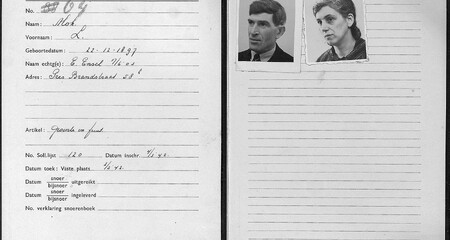 No. 64
Naam: Mok.
Voornaam: L.
Geboortedatum: 22-12-1897
Naam echtg(e): E. Ensel
Adres: Pres Brandstraat 28
Artikel: groente en fruit
No. Soll.lijst 120 Datum inschr.
Datum toek: Vaste. plaats
Datum snoer bijsnoer uitgereikt
Datum snoer bijsnoer ingeleverd
No. verklaring snoerenboek